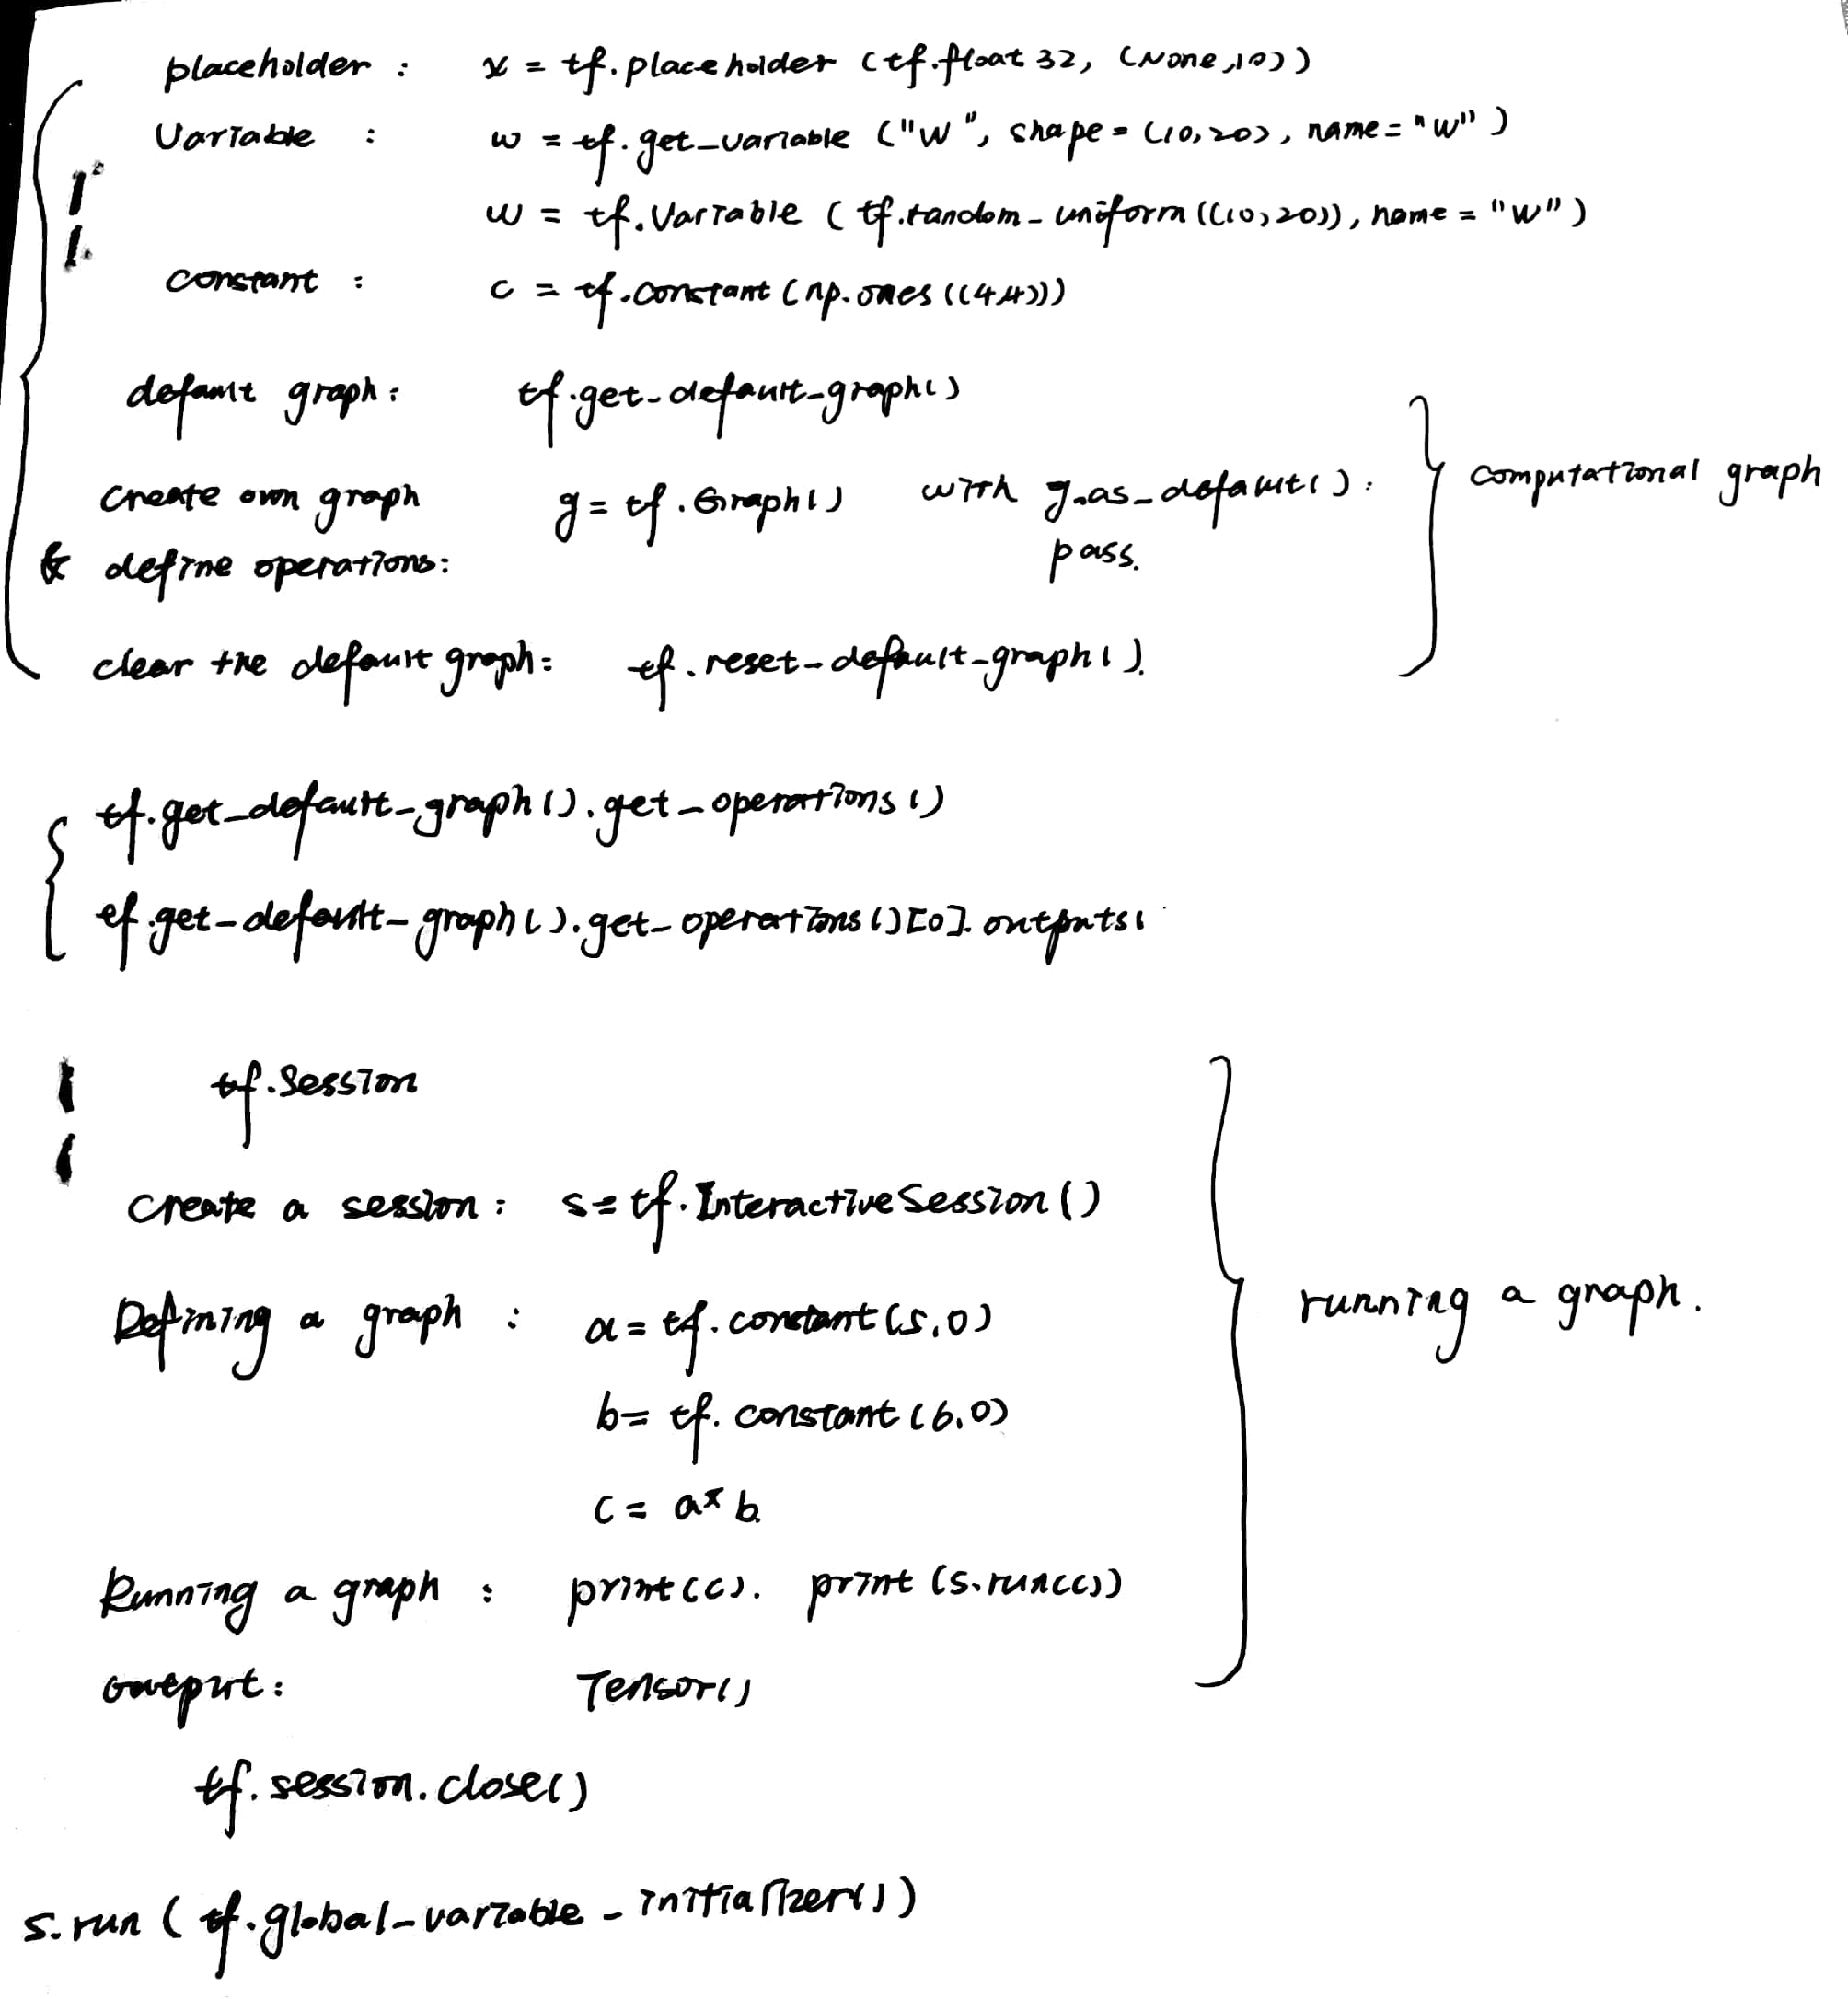 placeholder : x = tf.placeholder (tf.float 32, (None,10))
Variable : w = tf.get_variable ("W", shape = (10,20), name = "W")
w = tf.Variable (tf.random_uniform((10,20)), name = "W")
constant : c = tf.constant (np.ones((4,4)))
default graph: tf.get_default_graph()
create own graph g = tf.Graph() with g.as_default():
& define operations: pass.
computational graph
clear the default graph: tf.reset_default_graph().
tf.get_default_graph().get_operations()
tf.get_default_graph().get_operations()[0].outputs
tf.Session
create a session : s = tf.InteractiveSession()
Defining a graph : a = tf.constant(5.0)
running a graph.
b = tf.constant(6.0)
c = a * b
Running a graph : print(c). print(s.run(c))
output: Tensor()
tf.session.close()
s.run (tf.global_variable_initializer())